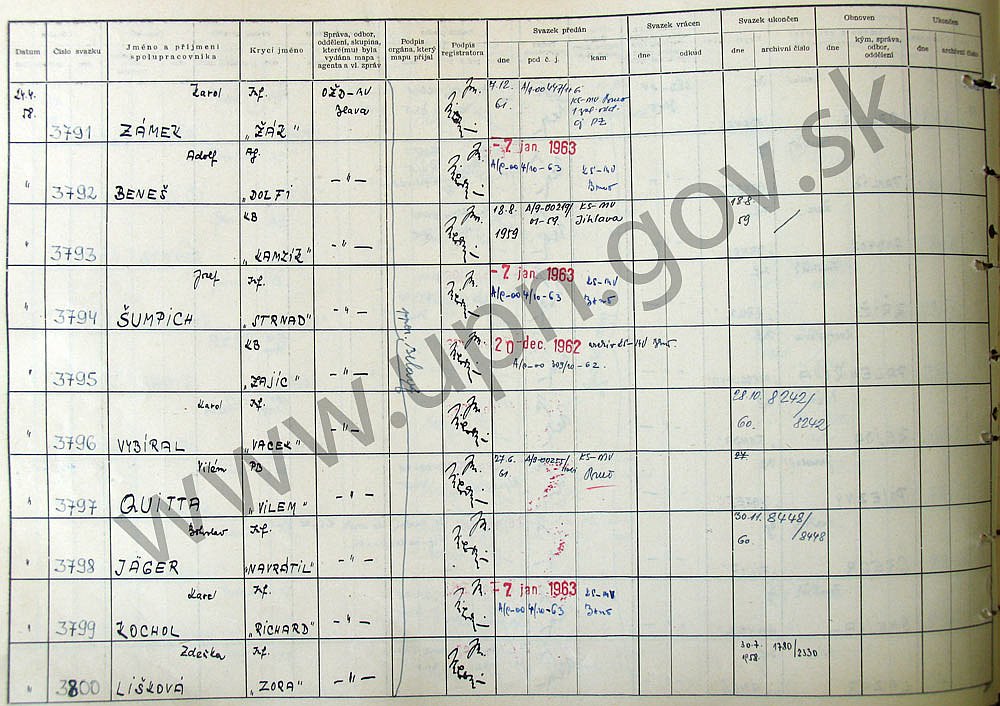 Datum
Číslo svazku
Jméno a příjmení spolupracovníka
Krycí jméno
Správa, odbor, oddělení, skupina, které(mu) byla vydána mapa agenta a vl. zpráv
Podpis orgána, který mapu přijal
Podpis registratora
Svazek předán
dne
pod č. j.
kam
Svazek vrácen
dne
odkud
Svazek ukončen
dne
archivní číslo
Obnoven
dne
kým, správa, odbor, oddělení
Ukončen
dne
archivní číslo
24.4. 58.
3791
Karol
ZÁMEK
„ŽÁK"
OŽD-MV
7.12.
61.
KS-MV
" 3792
Adolf
BENEŠ
Ag.
„DOLFI
- " -
- 7 jan. 1963
A/p-004/10-63
KS-MV
Brno
" 3793
KB
„KAMZÍK"
- " -
18.8.
1959
A/9-00219/
01-59.
KS-MV
Jihlava
18.8.
59
" 3794
Josef
ŠUMPICH
„STRNAD"
- " -
- 7 jan. 1963
A/p-004/10-63
KS-MV
Brno
" 3795
KB
„ZAJÍC"
- " -
20 dec. 1962
archiv KS-MV Brno.
A/0-00309/10-62.
" 3796
Karol
VYBÍRAL
„VACEK"
- " -
28.10.
60.
8242/
8242
" 3797
Vilém
QUITTA
PB
„VILEM"
- " -
27.6.
61.
KS-MV
Brno
27.
" 3798
Bohuslav
JÄGER
„NAVRÁTIL"
- " -
30.11.
60.
8448/
8448
" 3799
Karel
KOCHOL
„RICHARD"
- " -
- 7 jan. 1963
A/p-004/10-63
KS-MV
Brno
" 3800
Zdeňka
LIŠKOVÁ
„ZORA"
- " -
30.7.
1958.
1780/2330
www.upn.gov.sk